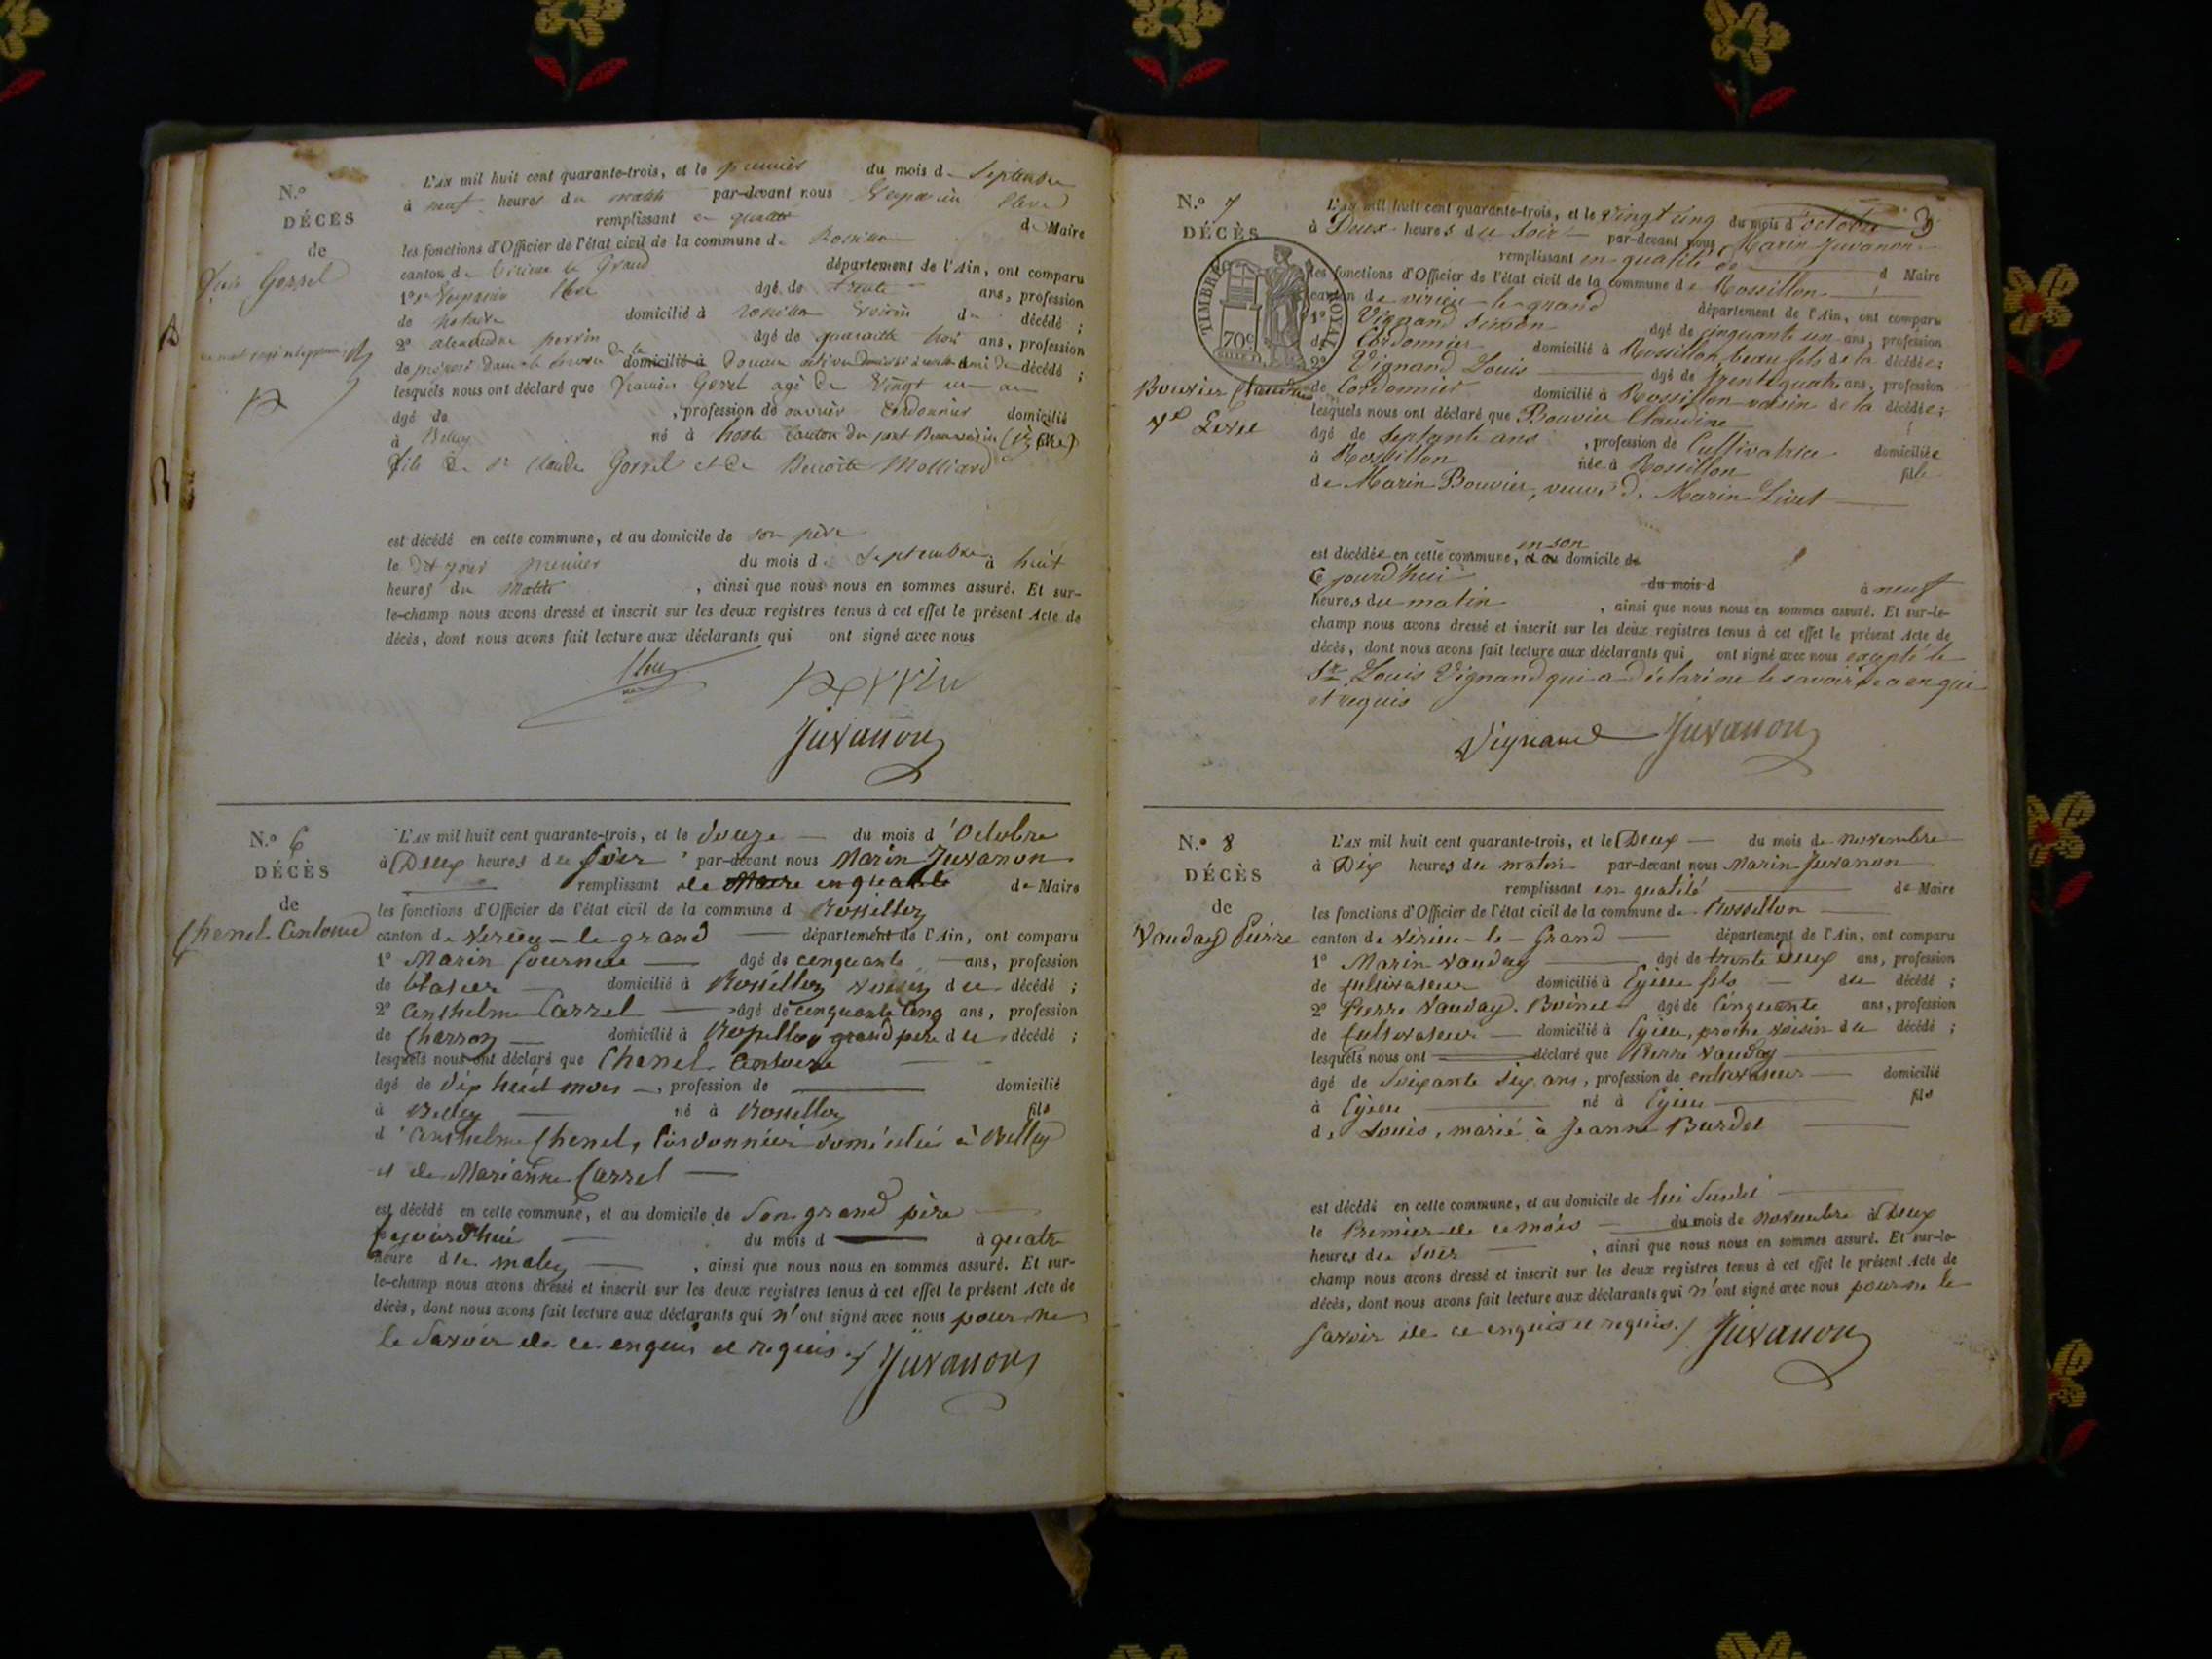 N.º
DÉCÈS
de
Gorrel
L'AN mil huit cent quarante-trois, et le premier du mois de Septembre
à neuf heures du matin par-devant nous
remplissant en qualité de Maire
les fonctions d'Officier de l'état civil de la commune de Rossillon
canton de Virieu le Grand département de l'Ain, ont comparu
1º âgé de trente ans, profession
de notaire domicilié à Rossillon voisin du décédé ;
2º alexandre perrin âgé de quarante trois ans, profession
de préposé dans le service de la domicilié à ami du décédé ;
lesquels nous ont déclaré que Gorrel agé de vingt un an
âgé de , profession de ouvrier cordonnier domicilié
à Belley né à canton du pont Beauvoisin (isère)
fils de sr claude Gorrel et de Benoite Molliard
est décédé en cette commune, et au domicile de son père
le dit jour premier du mois de septembre à huit
heures du matin , ainsi que nous nous en sommes assuré. Et sur-
le-champ nous avons dressé et inscrit sur les deux registres tenus à cet effet le présent Acte de
décès, dont nous avons fait lecture aux déclarants qui ont signé avec nous
Perrin
Juvanon
N.º 6
DÉCÈS
de
Chenel Antoine
L'AN mil huit cent quarante-trois, et le douze du mois d'Octobre
à Deux heures du soir par-devant nous Marin Juvanon
remplissant de Maire en qualité de Maire
les fonctions d'Officier de l'état civil de la commune d Rossillon
canton de Virieu-le-grand département de l'Ain, ont comparu
1º Marin fournier âgé de cenquante ans, profession
de domicilié à Rossillon voisin du décédé ;
2º Anthelme Carrel âgé de cenquante cinq ans, profession
de Charron domicilié à Rossillon grand père du décédé ;
lesquels nous ont déclaré que Chenel Antoine
âgé de dix huit mois , profession de domicilié
à Belley né à Rossillon fils
d'Anthelme Chenel, Cordonnier domicilié à Belley
et de Marianne Carrel
est décédé en cette commune, et au domicile de Son grand père
ce jourd'hui du mois d à quatre
heure du matin , ainsi que nous nous en sommes assuré. Et sur-
le-champ nous avons dressé et inscrit sur les deux registres tenus à cet effet le présent Acte de
décès, dont nous avons fait lecture aux déclarants qui n'ont signé avec nous pour ne
le Savoir de ce enquis et requis./ Juvanon
3
N.º 7
DÉCÈS
TIMBRE ROYAL
70c
Bouvier Claudine
Ve Livet
L'AN mil huit cent quarante-trois, et le vingt cinq du mois d'octobre
à Deux heures du soir par-devant nous Marin Juvanon
remplissant en qualité de d Maire
les fonctions d'Officier de l'état civil de la commune de Rossillon
canton de virieu-le-grand département de l'Ain, ont comparu
1º Vignand Simon âgé de cinquante un ans, profession
de Cordonnier domicilié à Rossillon beau fils de la décédée ;
2º Vignand Louis âgé de trente quatre ans, profession
de Cordonnier domicilié à Rossillon voisin de la décédée ;
lesquels nous ont déclaré que Bouvier Claudine
âgé de septante ans , profession de Cultivatrice domiciliée
à Rossillon née à Rossillon fille
de Marin Bouvier, veuve de Marin Livet
est décédée en cette commune, et au en son domicile de
ce jourd'hui du mois d à neuf
heures du matin , ainsi que nous nous en sommes assuré. Et sur-le-
champ nous avons dressé et inscrit sur les deux registres tenus à cet effet le présent Acte de
décès, dont nous avons fait lecture aux déclarants qui ont signé avec nous excepté le
Sr Louis Vignand qui a déclaré ne le savoir de ce enquis
et requis
Vignand Juvanon
N.º 8
DÉCÈS
de
Vauday Pierre
L'AN mil huit cent quarante-trois, et le Deux du mois de novembre
à Dix heures du matin par-devant nous Marin Juvanon
remplissant en qualité de Maire
les fonctions d'Officier de l'état civil de la commune de Rossillon
canton de Virieu-le-Grand département de l'Ain, ont comparu
1º Marin Vauday âgé de trente deux ans, profession
de cultivateur domicilié à Egieu fils du décédé ;
2º Pierre Vauday âgé de Cinquante ans, profession
de cultivateur domicilié à Egieu, proche voisin du décédé ;
lesquels nous ont déclaré que Pierre Vauday
âgé de Soixante Six ans, profession de cultivateur domicilié
à Egieu né à Egieu fils
de Louis, marié à Jeanne Burdet
est décédé en cette commune, et au domicile de lui Sus dit
le Premier de ce mois du mois de novembre à Deux
heures du soir , ainsi que nous nous en sommes assuré. Et sur-le-
champ nous avons dressé et inscrit sur les deux registres tenus à cet effet le présent Acte de
décès, dont nous avons fait lecture aux déclarants qui n'ont signé avec nous pour ne le
Savoir de ce enquis et requis./ Juvanon